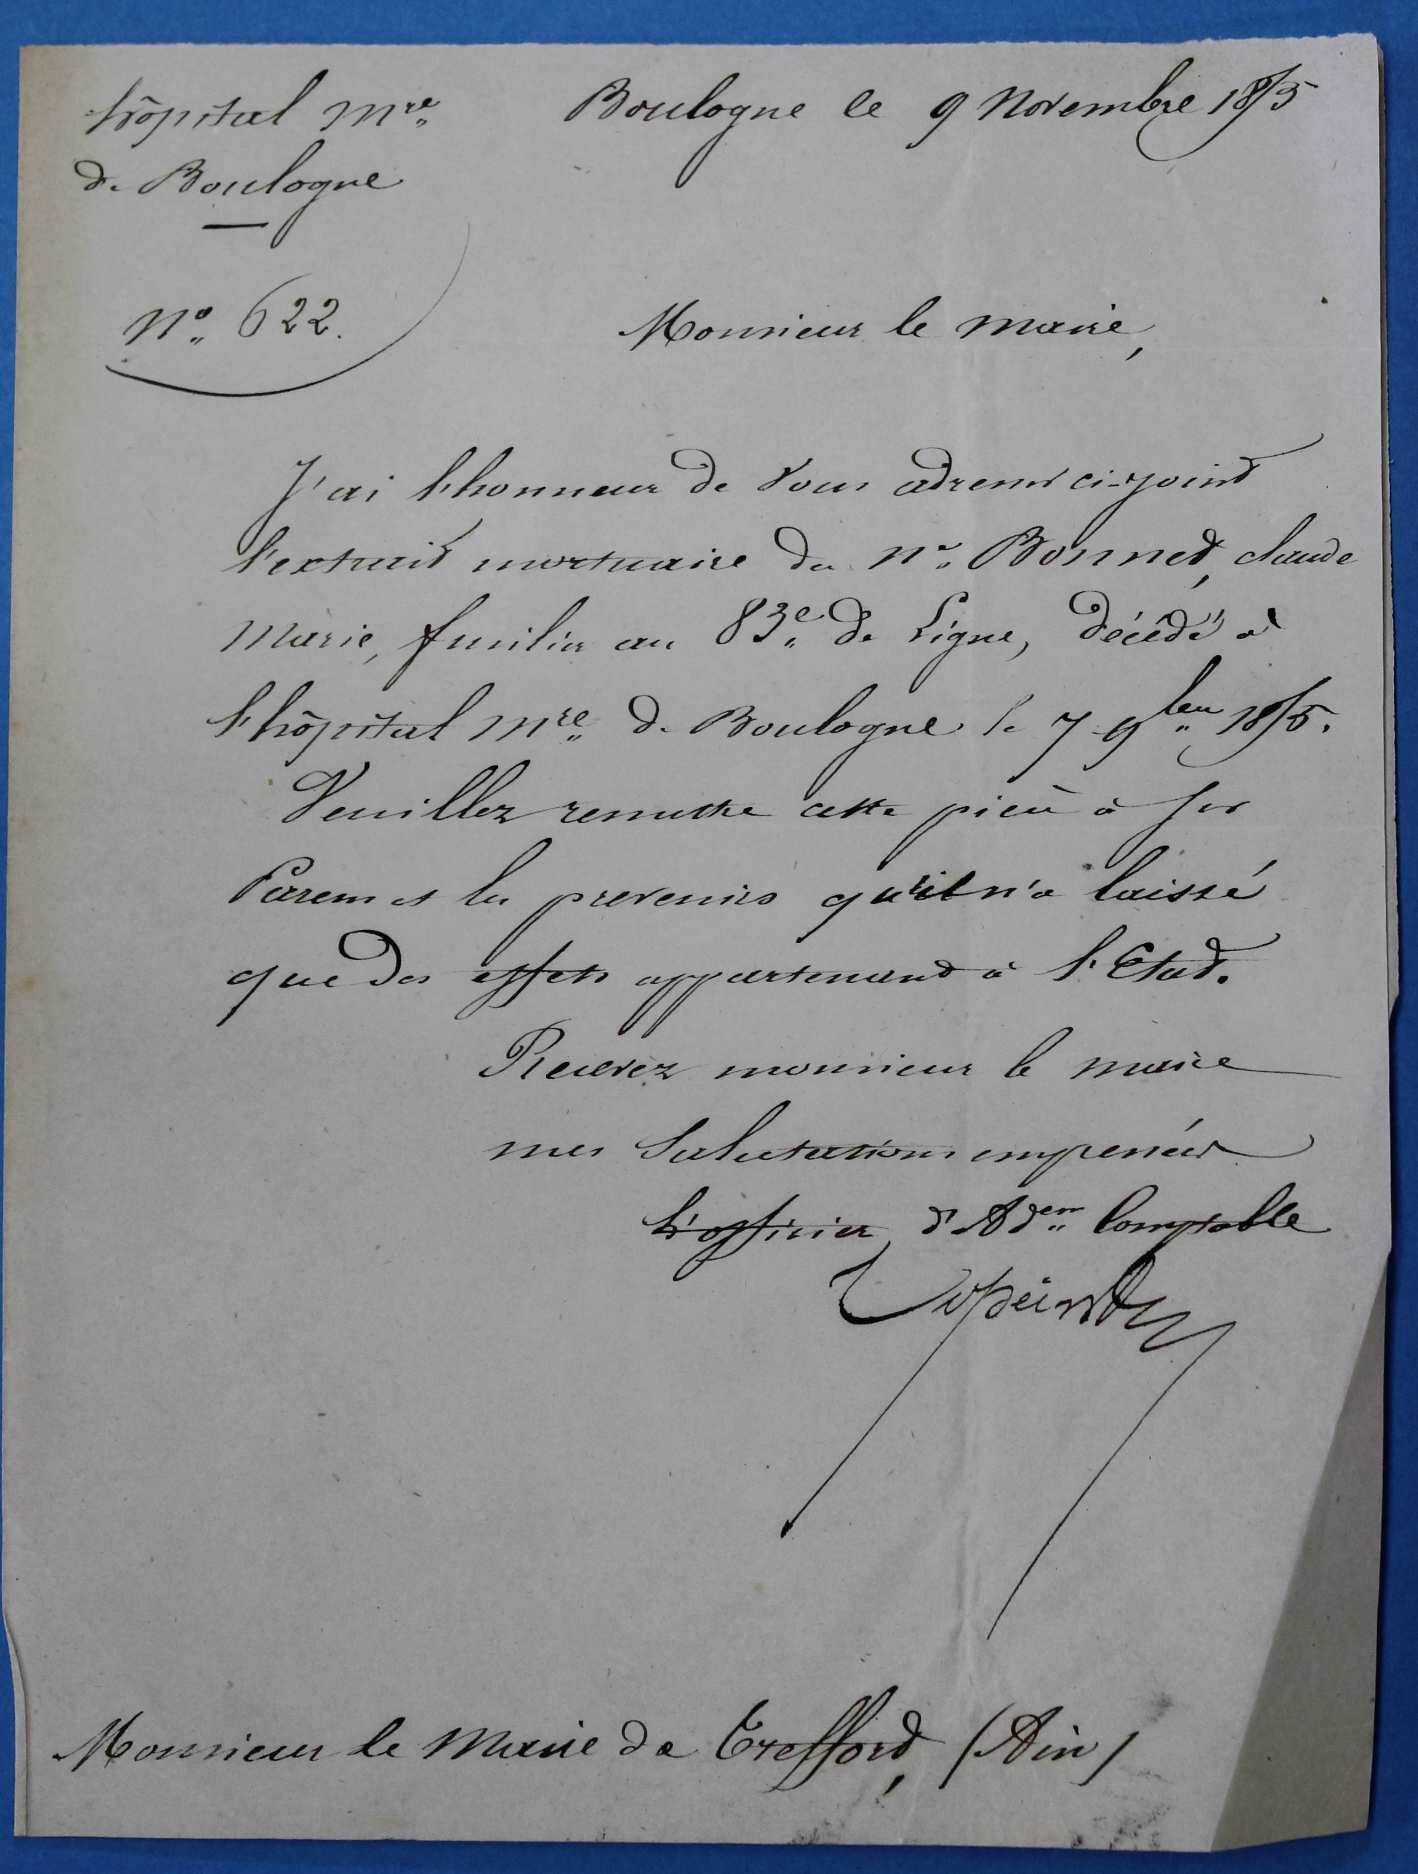 hôpital Mre
de Boulogne
Boulogne le 9 Novembre 1855
No 622.
Monsieur le Maire,
J'ai l'honneur de vous adresser ci-joint
l'extrait mortuaire du né Bonnet, claude
Marie, fusilier au 83e de Ligne, décédé à
l'hôpital Mre de Boulogne le 7 9bre 1855.
Veuillez remettre cette pièce à ses
Parens et les prevenirs qu'il n'a laissé
que des effets appartenant à l'Etat.
Recevez monsieur le maire
mes Salutations empressées
L'officier d'Adon Comptable
Monsieur le Maire de Treffort, (Ain)